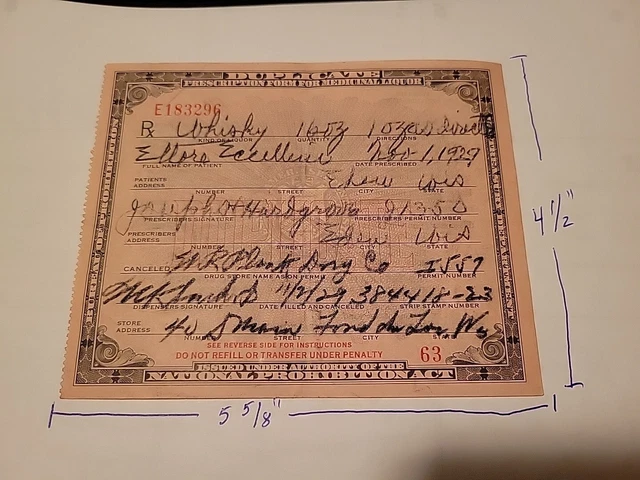 DUPLICATE
PRESCRIPTION FORM FOR MEDICINAL LIQUOR
E183296
Rx Whisky 16 oz 1 oz as direct
KIND OF LIQUOR QUANTITY DIRECTIONS
Nov 1, 1929
FULL NAME OF PATIENT DATE PRESCRIBED
PATIENTS ADDRESS Eden Wis
NUMBER STREET CITY STATE
Joseph H Hardgrove
PRESCRIBERS SIGNATURE PRESCRIBERS PERMIT NUMBER
PRESCRIBERS ADDRESS Eden Wis
NUMBER STREET CITY STATE
CANCELED Plank Drug Co I557
DRUG STORE NAME AS ON PERMIT PERMIT NUMBER
11/2/29 384418-23
DISPENSERS SIGNATURE DATE FILLED AND CANCELED STRIP STAMP NUMBER
STORE ADDRESS 40 S Main Fond du Lac Wis
NUMBER STREET CITY STATE
SEE REVERSE SIDE FOR INSTRUCTIONS
DO NOT REFILL OR TRANSFER UNDER PENALTY 63
ISSUED UNDER AUTHORITY OF THE
NATIONAL PROHIBITION ACT
4 1/2"
5 5/8"